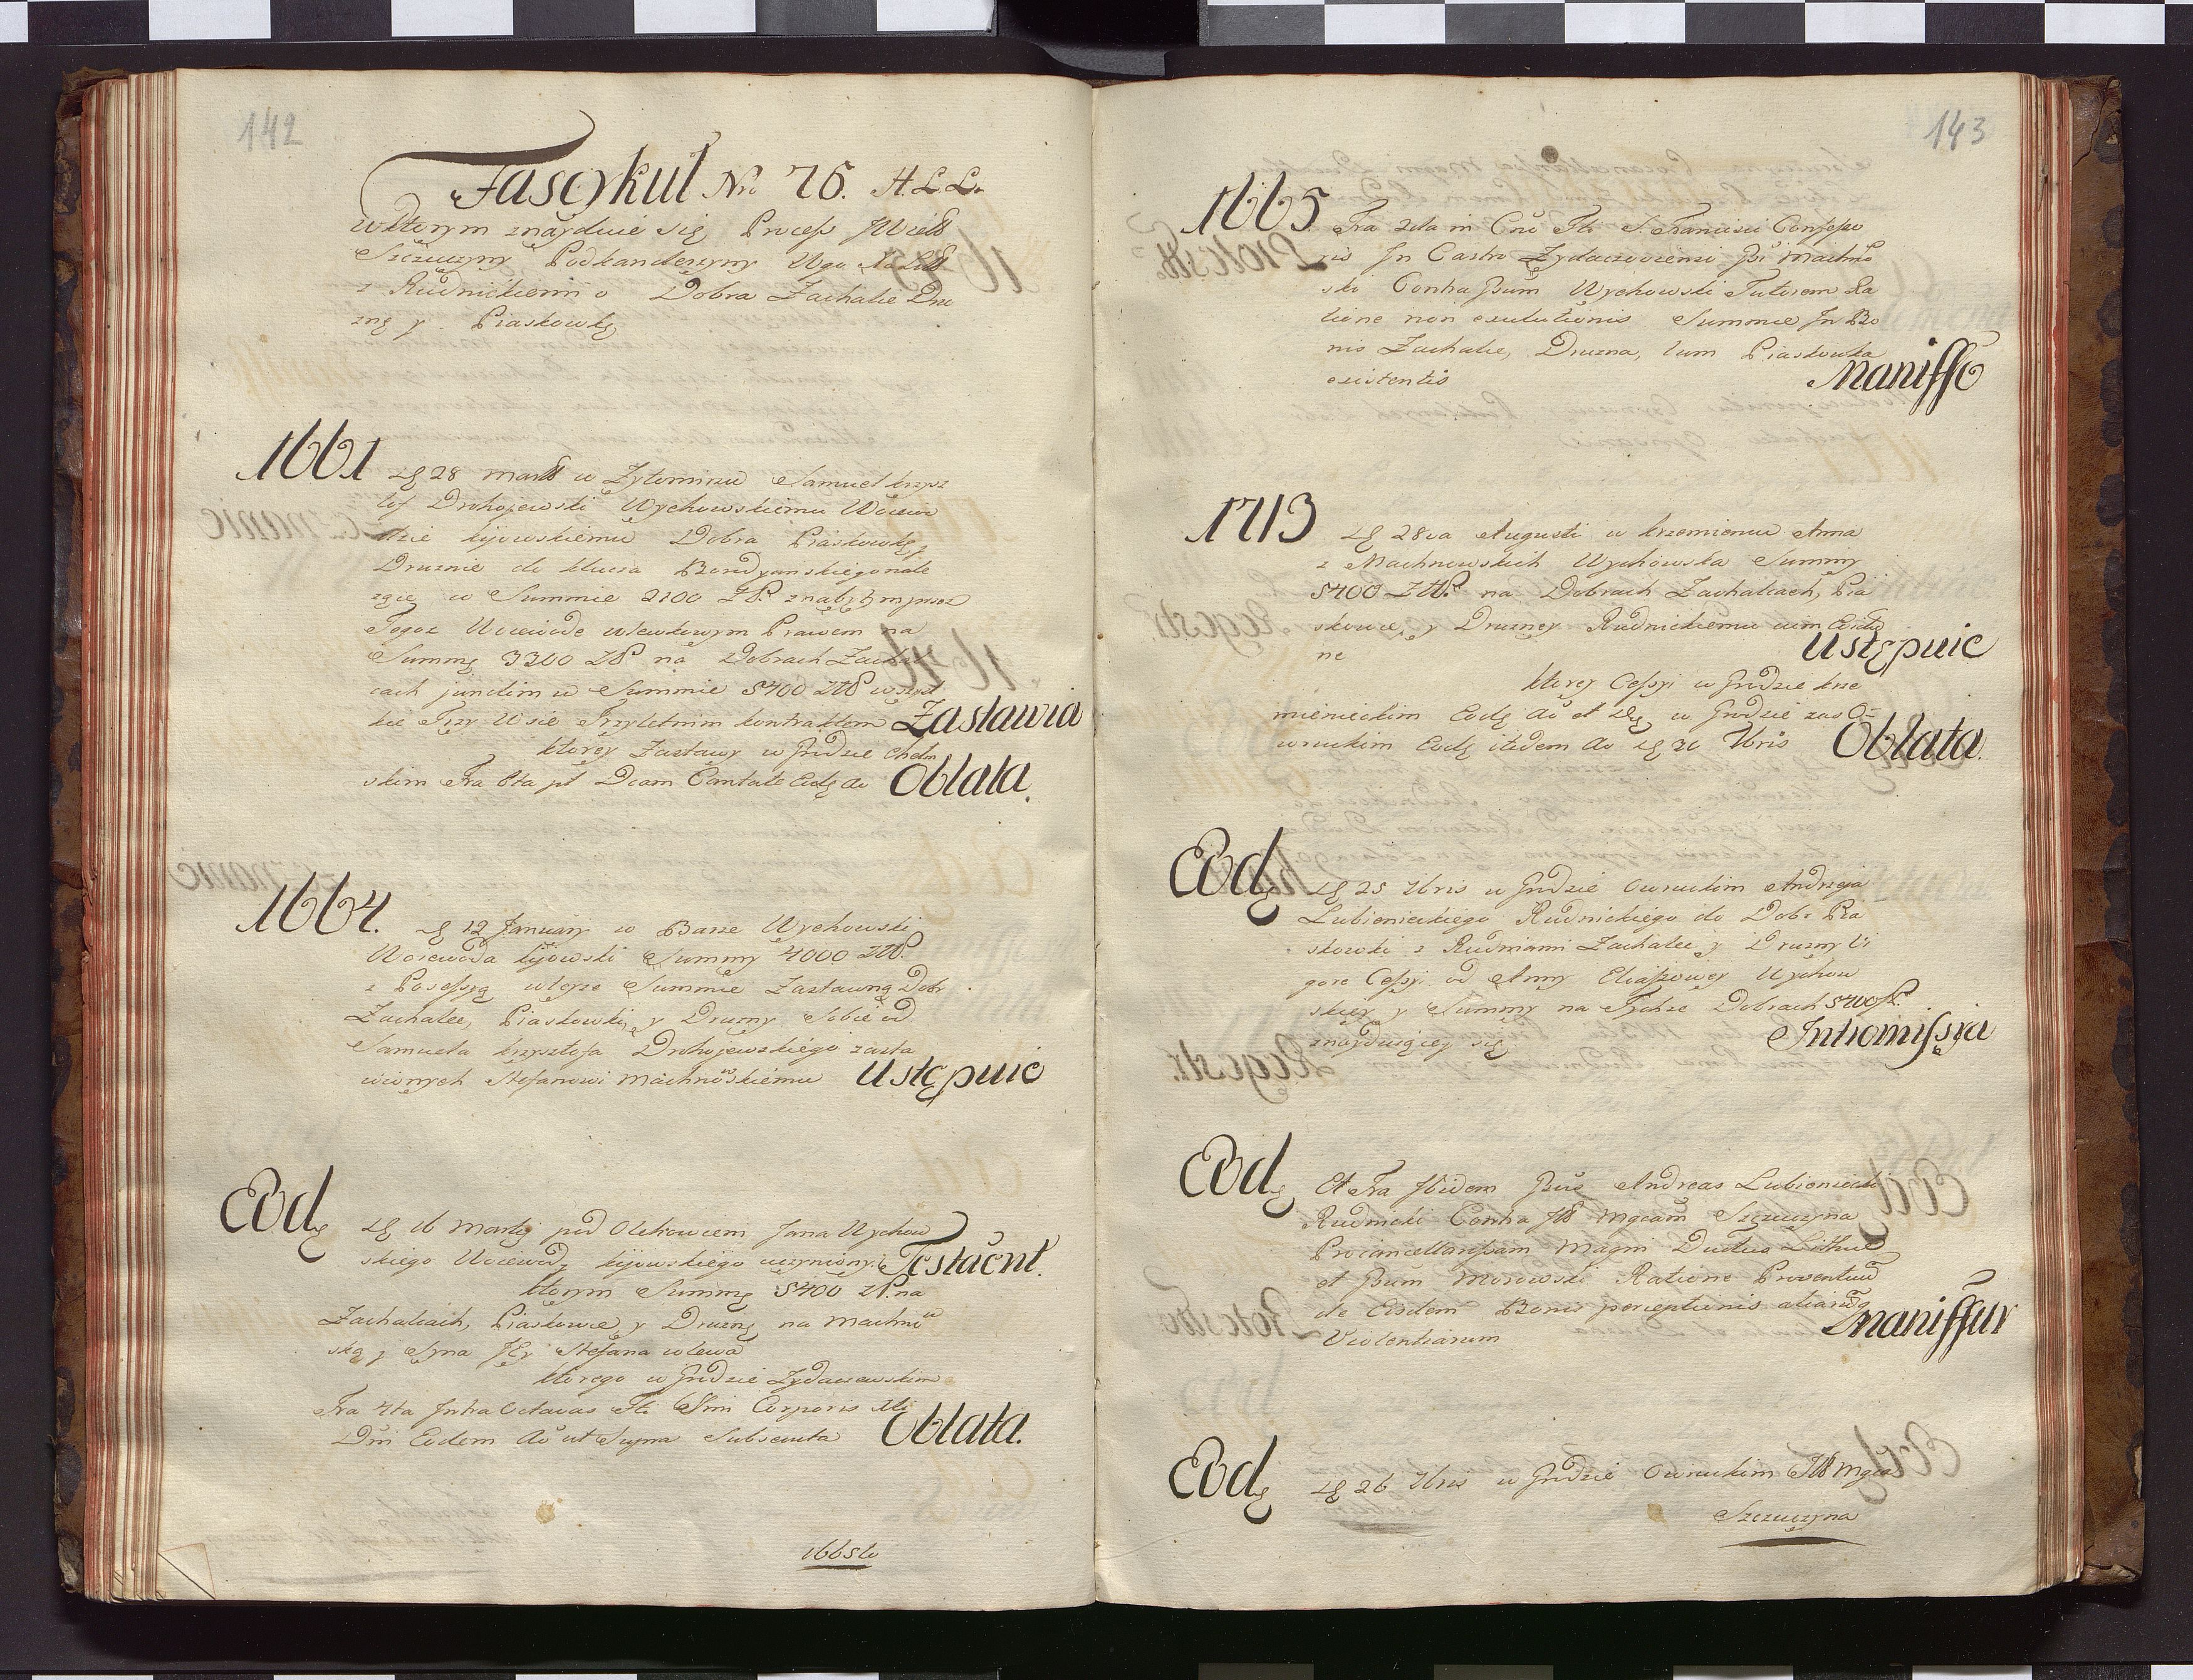 142
Fascykuł Nro 76. H.L.L.
w ktorym znayduie się Process JWielb
Szczuczyny Podkanclerzyny Wgo Xa Litt
z Rudnickiemi o Dobra Zachalie Dru
znę y Piaskowkę
1661 Dę 28 Martii w Zytomirzu Samuel krzysz
tof Drohojewski Wychowskiemu Woiewo
dzie kijowskiemu Dobra Piaskowkę,
Druznie do klucza Borodyanskiego nale
zące w Summie 2100 ZłP. znabytym przez
Tegoz Woiewode wlewkowym Prawem na
Summę 3300 ZłP na Dobrach Zachal
cach junctim w Summie 5400 ZłP wszyst
kie Trzy Wsie Trzyletnim kontraktem Zastawia
ktorey Zastawy w Grodzie Chełm
skim Fra 6ta pt Dcam Cantate Eodę Ao Oblata.
1664. Dę 12 January w Barze Wychowski
Woiewoda kijowski Summy 4000 ZłP.
z Possessyą w teyze Summie Zastawną Dobr
Zachalec, Piaskowki, y Druzny Sobie od
Samuela krzysztofa Drohojewskiego zasta
wionych Stefanowi Machnowskiemu Ustępuie
Eodę Dę 16 Martij pod Olchowcem Jana Wychow
skiego Woiewody kijowskiego uczyniony Testament.
ktorym Summę 5400 Zł. na
Zachalcach, Piaskowce y Druznę na Machnow
ską y Syna Jey Stefana wlewa
ktorego w Grodzie Zydaczewskim
Fra 4ta Intra Octavas Fti SSmi Corporis Xti
Dni Eodem Ao ut Supra Subsecuta Oblata.
1665to
143
1665 Fra 2da in Cno Fti S. Francisci Confesso
ris In Castro Zydaczoviensi Gsi Machno
ski Contra Gsum Wychowski Tutorem Ra
tione non exolutionis Summae In Bo
nis Zachalie, Druzna, tum Piaskowka
existentis Maniffo
1713 Dę 28va Augusti w krzemiencu Anna
z Machnowskich Wychowska Summy
5400 ZłP. na Dobrach Zachalcach, Pia
skowce, y Druzney Rudnickiemu cum Evictio
ne Ustępuie
ktorey Cessyi w Grodzie krze
mienieckim Eodę Ao et Dę, w Grodzie zas O=
wruckim Eodę itidem Ao Dę 30 7bris Oblata.
Eodę Dę 25 7bris w Grodzie Owruckim Andrzeja
Lubienieckiego Rudnickiego do Dobr Pia
skowki z Rudniami Zachalec y Druzny Vi
gore Cessyi od Anny Eliaszowey Wychow
skiey y Summy na Tychze Dobrach 5400 zł.
znayduiącey się Intromissya
Eodę Et Fra Ibidem Gsus Andreas Lubieniecki
Rudnicki Contra Ill Mgcam Szczuczyna
Procancellarissam Magni Ductus Lithuae
et Gsum Morowski Ratione Proventuum
de Eisdem Bonis perceptionis aliarumq
Violentiarum Maniffur
Eodę Dę 26 7bris w Grodzie Owruckim Ill Mgca
Szczuczyna